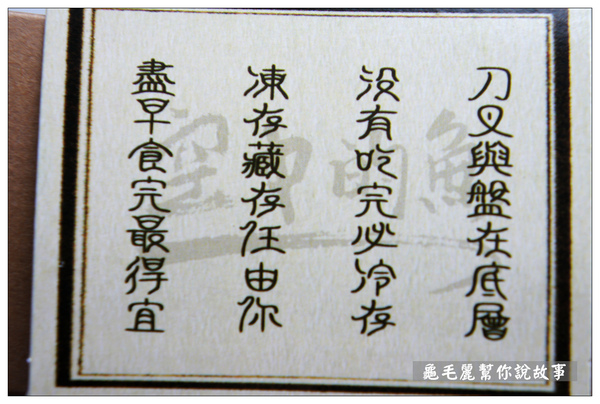 刀叉與盤在底層
没有吃完必冷存
凍存藏存任由你
盡早食完最得宜
空中的魚
龜毛麗幫你說故事